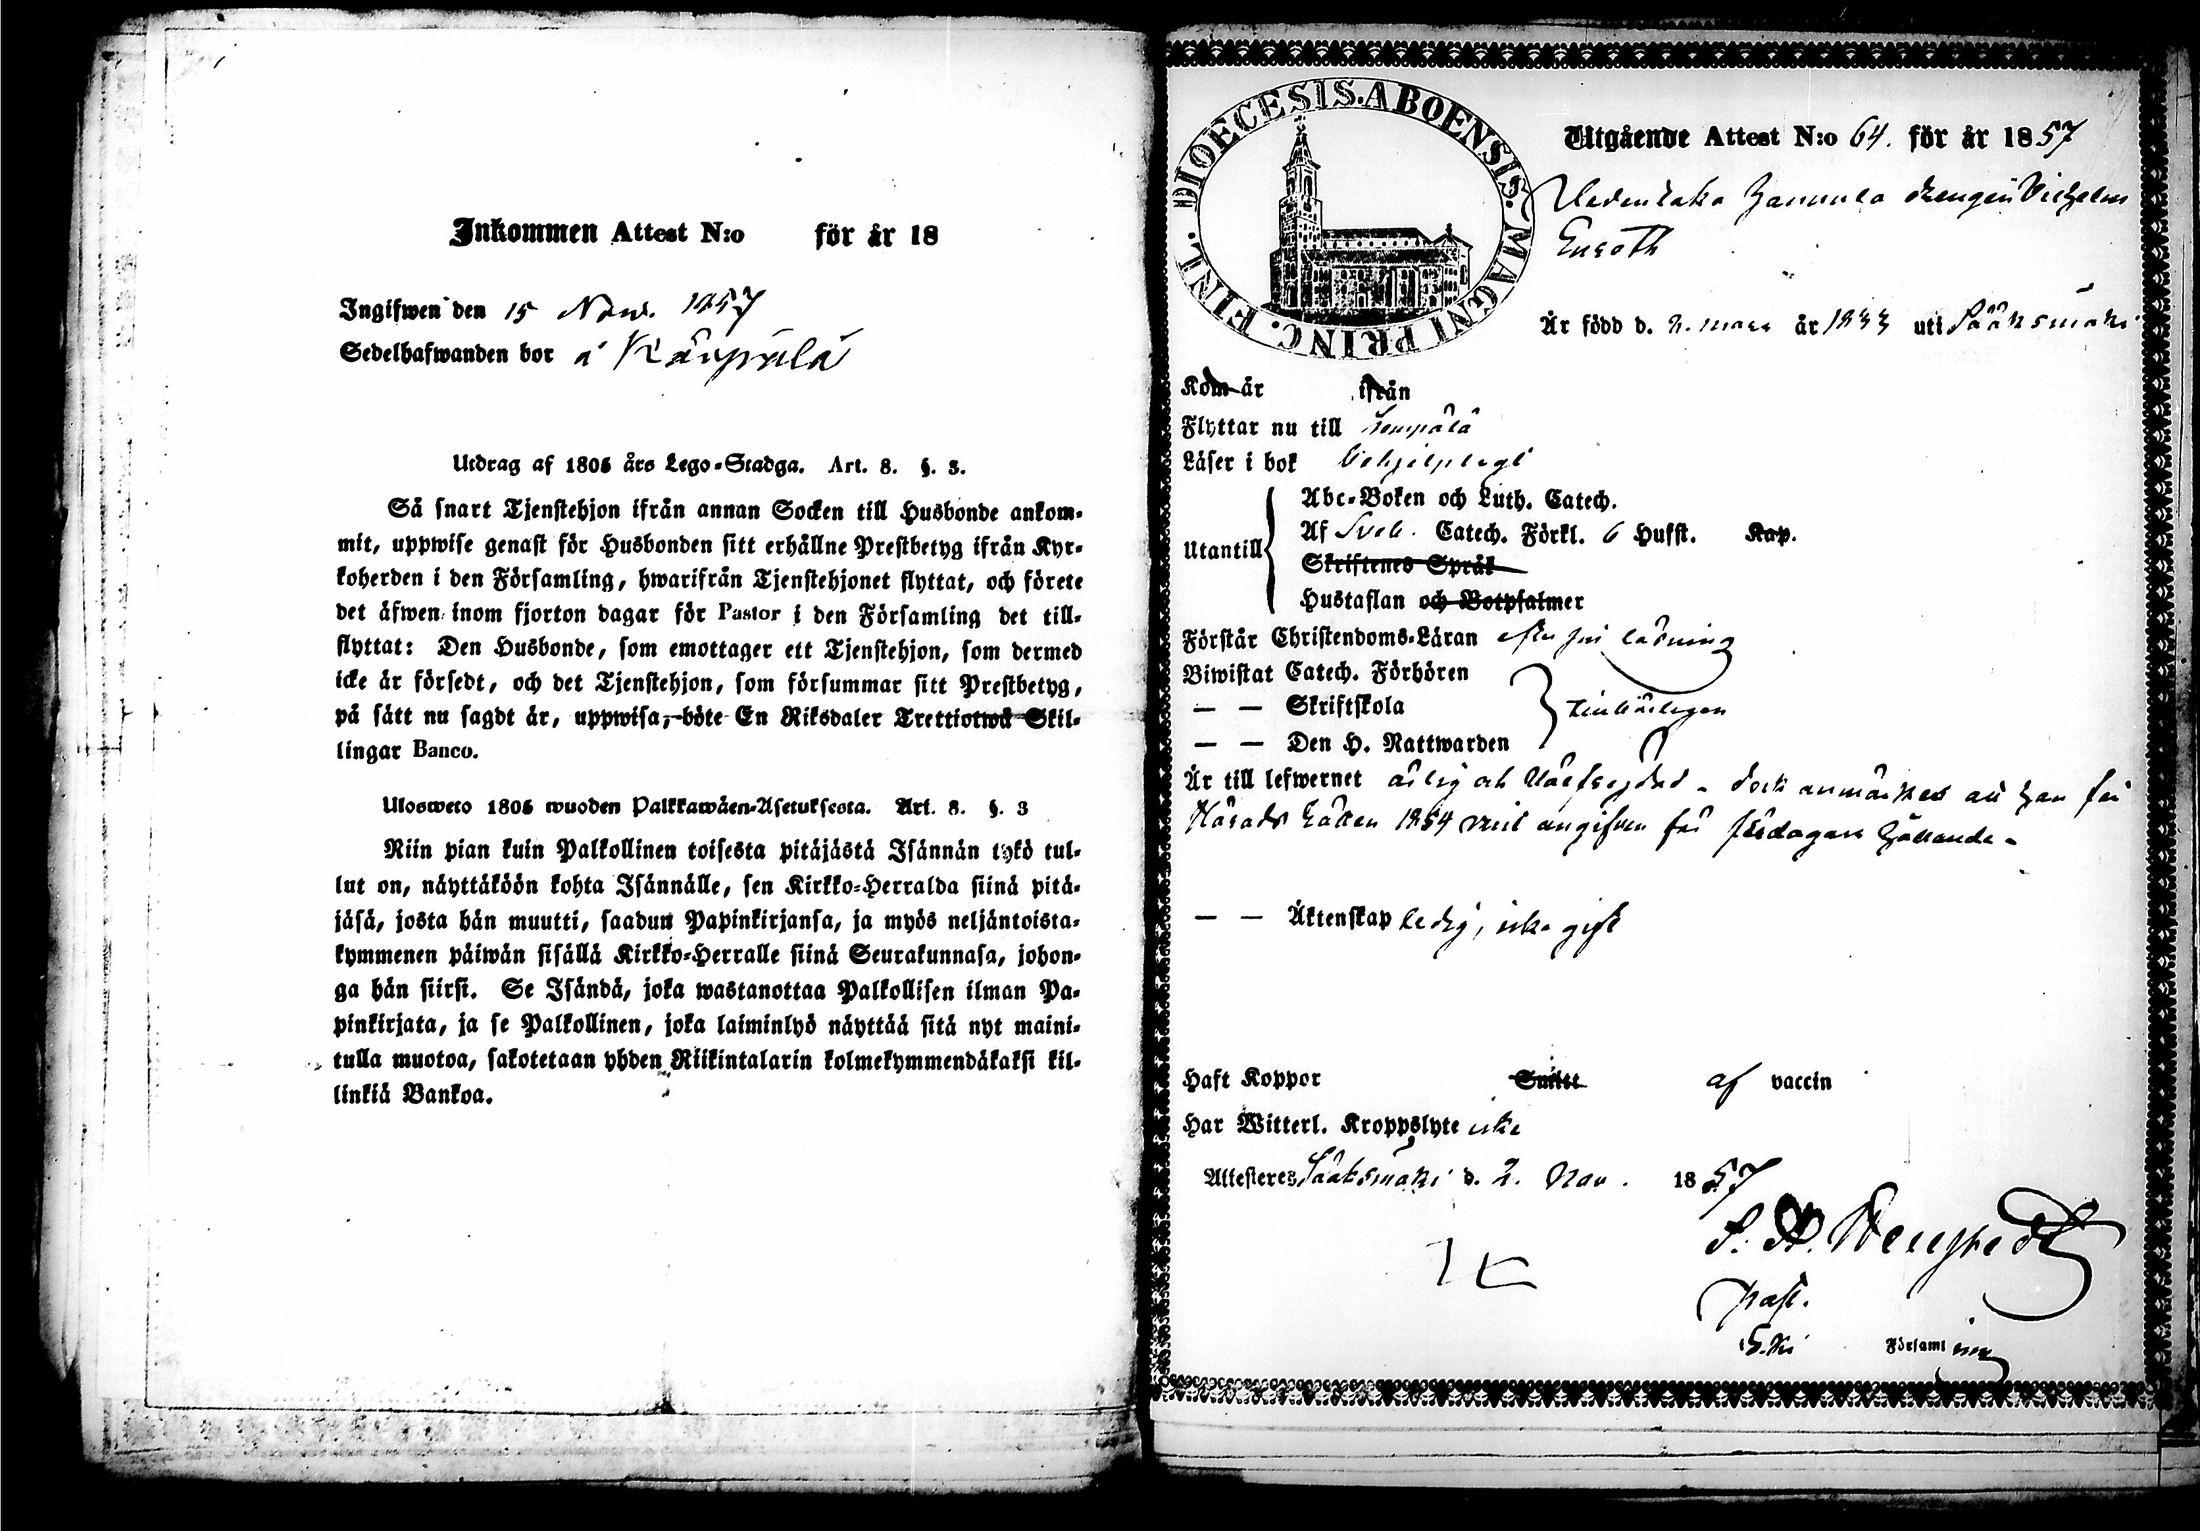 Inkommen Attest N:o för år 18
Ingifwen den 15 Nov. 1857
Sedelhafwanden bor å
Utdrag af 1805 års Lego-Stadga. Art. 8. §. 3.
Så snart Tjenstehjon ifrån annan Socken till Husbonde ankom-
mit, uppwise genast för Husbonden sitt erhållne Prestbetyg ifrån Kyr-
koherden i den Församling, hwarifrån Tjenstehjonet flyttat, och förete
det äfwen inom fjorton dagar för Pastor i den Församling det till-
flyttat: Den Husbonde, som emottager ett Tjenstehjon, som dermed
icke är försedt, och det Tjenstehjon, som försummar sitt Prestbetyg,
på sätt nu sagdt är, uppwisa, böte En Riksdaler Trettiotwå Skil-
lingar Banco.
Ulosweto 1805 wuoden Palkkawäen-Asetuksesta. Art. 8. §. 3
Niin pian kuin Palkollinen toisesta pitäjästä Isännän tykö tul-
lut on, näyttäköön kohta Isännälle, sen Kirkko-Herralda siinä pitä-
jäsä, josta hän muutti, saadun Papinkirjansa, ja myös neljäntoista-
kymmenen päiwän sisällä Kirkko-Herralle siinä Seurakunnasa, johon-
ga hän siirsi. Se Isändä, joka wastanottaa Palkollisen ilman Pa-
pinkirjata, ja se Palkollinen, joka laiminlyö näyttää sitä nyt maini-
tulla muotoa, sakotetaan yhden Riikintalarin kolmekymmendäkaksi kil-
linkiä Bankoa.
DIOECESIS. ABOENSIS. MAGNI PRINC. FINL.
Utgående Attest N:o 64. för år 1857
drengen Vilhelm
Enroth
Är född d. 2. mars år 1833 uti Sääksmäki
Kom år ifrån
Flyttar nu till Lempälä
Läser i bok behjelpligt
Utantill
Abc-Boken och Luth. Catech.
Af Sveb. Catech. Förkl. 6 Hufst. Kap.
Skriftenes Språk
Hustaflan och Botpsalmer
Förstår Christendoms-Läran efter sin läsning
Biwistat Catech. Förhören
— — Skriftskola
— — Den H. Nattwarden
Är till lefwernet ärlig och wälfrejdad - dock anmärkes att han för
Härads Rätten 1854 varit angifven för
— — Äktenskap ledig, icke gift
Haft Koppor Smitt af vaccin
Har Witterl. Kroppslyte icke
Attesteres Sääksmäki d. 2. Nov. 1857
Past.
S.ki Församling